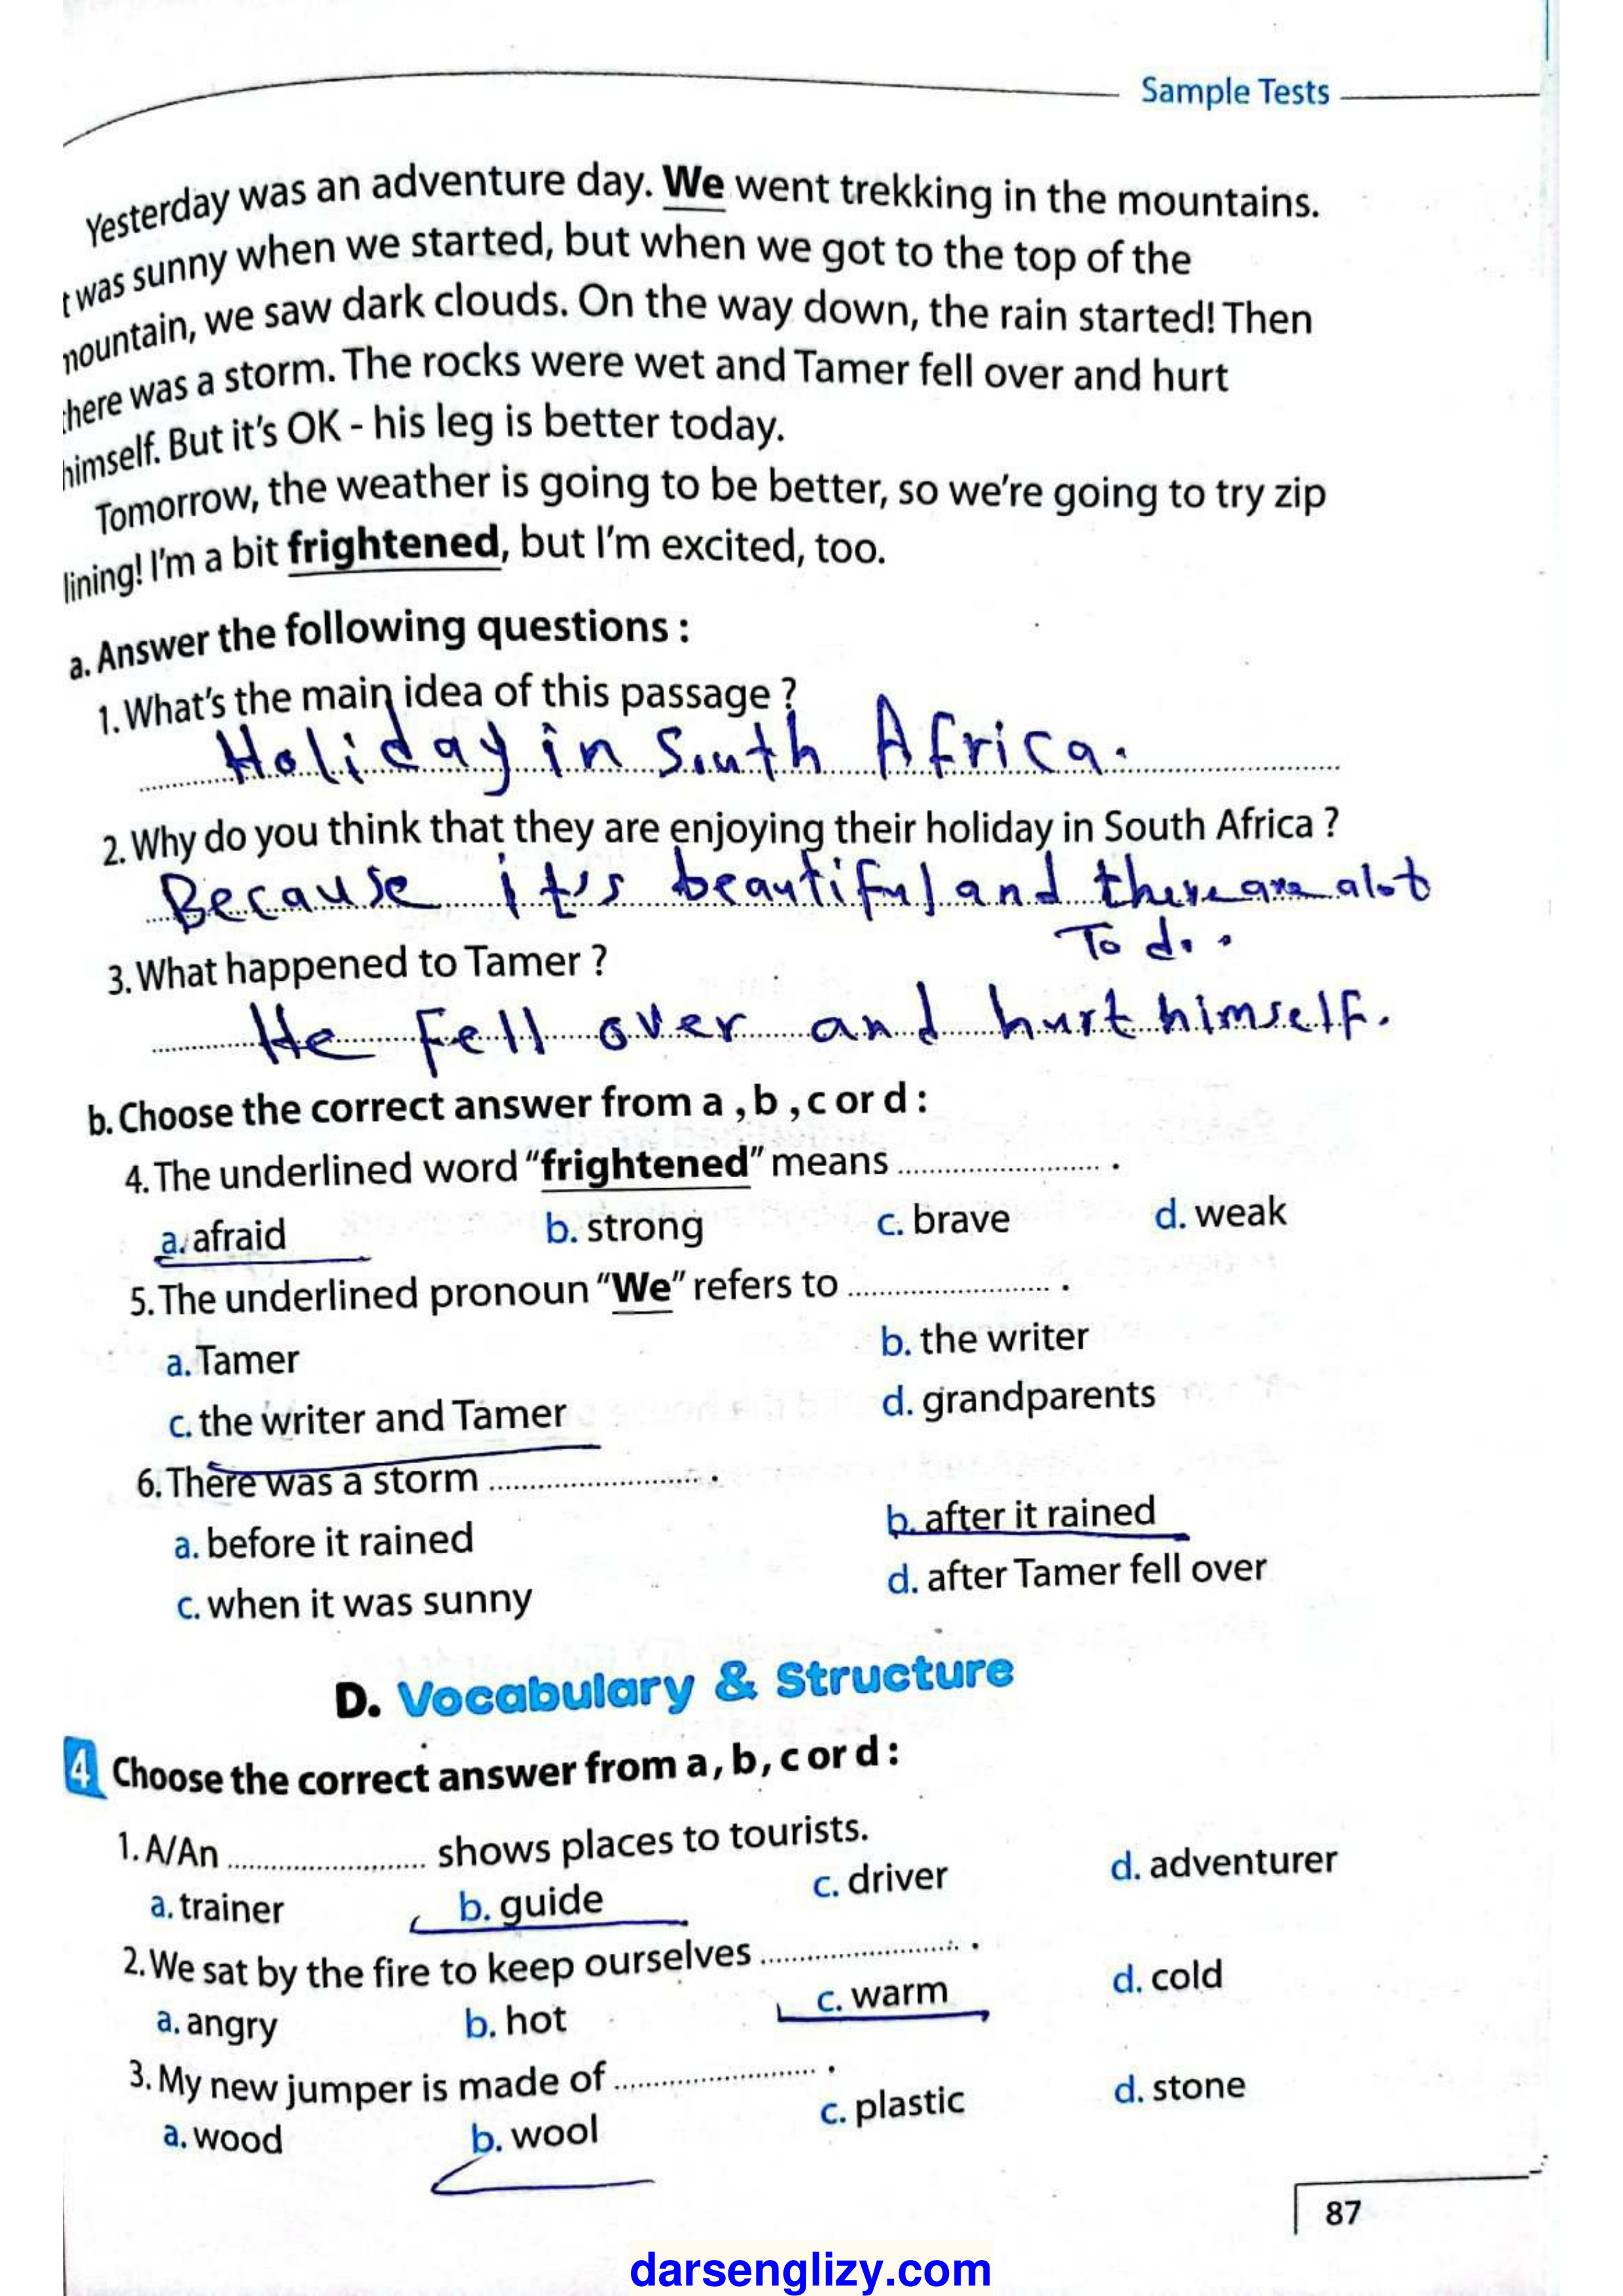 Sample Tests
Yesterday was an adventure day. We went trekking in the mountains.
t was sunny when we started, but when we got to the top of the
nountain, we saw dark clouds. On the way down, the rain started! Then
here was a storm. The rocks were wet and Tamer fell over and hurt
himself. But it's OK - his leg is better today.
Tomorrow, the weather is going to be better, so we're going to try zip
lining! I'm a bit frightened, but I'm excited, too.
a. Answer the following questions :
1. What's the main idea of this passage ?
Holiday in South Africa.
2. Why do you think that they are enjoying their holiday in South Africa ?
Because it's beautiful and there are a lot
To do.
3. What happened to Tamer ?
He Fell over and hurt himself.
b. Choose the correct answer from a , b , c or d :
4. The underlined word "frightened" means .......................... .
a. afraid b. strong c. brave d. weak
5. The underlined pronoun "We" refers to .......................... .
a. Tamer b. the writer
c. the writer and Tamer d. grandparents
6. There was a storm .......................... .
a. before it rained b. after it rained
c. when it was sunny d. after Tamer fell over
D. Vocabulary & Structure
4 Choose the correct answer from a , b , c or d :
1. A/An .......................... shows places to tourists.
a. trainer b. guide c. driver d. adventurer
2. We sat by the fire to keep ourselves .......................... .
a. angry b. hot c. warm d. cold
3. My new jumper is made of .......................... .
a. wood b. wool c. plastic d. stone
87
darsenglizy.com